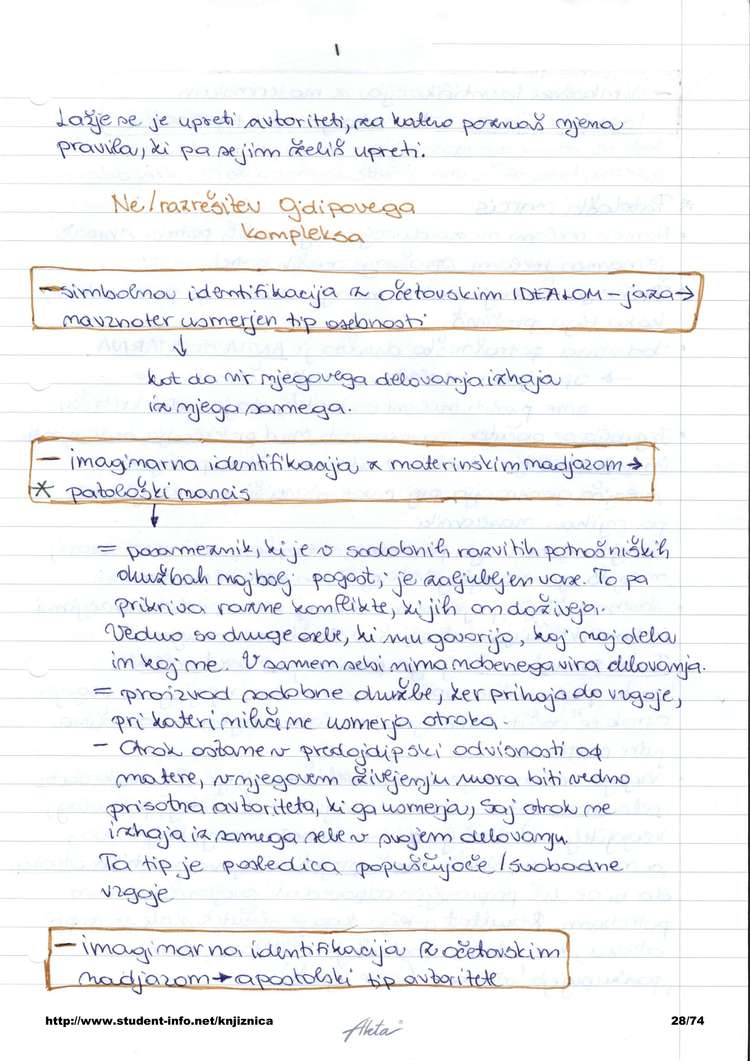 1
Lažje se je upreti avtoriteti, za katero poznaš njena
pravila, ki pa se jim želiš upreti.
Ne/razrešitev Ojdipovega
kompleksa
- simbolnov identifikacija z očetovskim IDEALOM - jaza →
navznoter usmerjen tip osebnosti
↓
kot da vir njegovega delovanja izhaja
iz njega samega.
- imaginarna identifikacija z materinskim nadjazom →
* patološki narcis
↓
= posameznik, ki je v sodobnih razvitih potrošniških
družbah najbolj pogost, je zaljubljen vase. To pa
prikriva razne konflikte, ki jih on doživeja.
Vedno so druge osebe, ki mu govorijo, kaj naj dela
in kaj ne. V samem sebi nima nobenega vira delovanja.
= proizvod sodobne družbe, ker prihaja do vzgoje,
pri kateri nihče ne usmerja otroka.
- Otrok ostane v predojdipski odvisnosti od
matere, v njegovem živejenju mora biti vedno
prisotna avtoriteta, ki ga usmerja, saj otrok ne
izhaja iz samega sebe v svojem delovanju.
Ta tip je posledica popuščujoče/svobodne
vzgoje
- imaginarna identifikacija z očetovskim
nadjazom → apostolski tip avtoritete
http://www.student-info.net/knjiznica
28/74